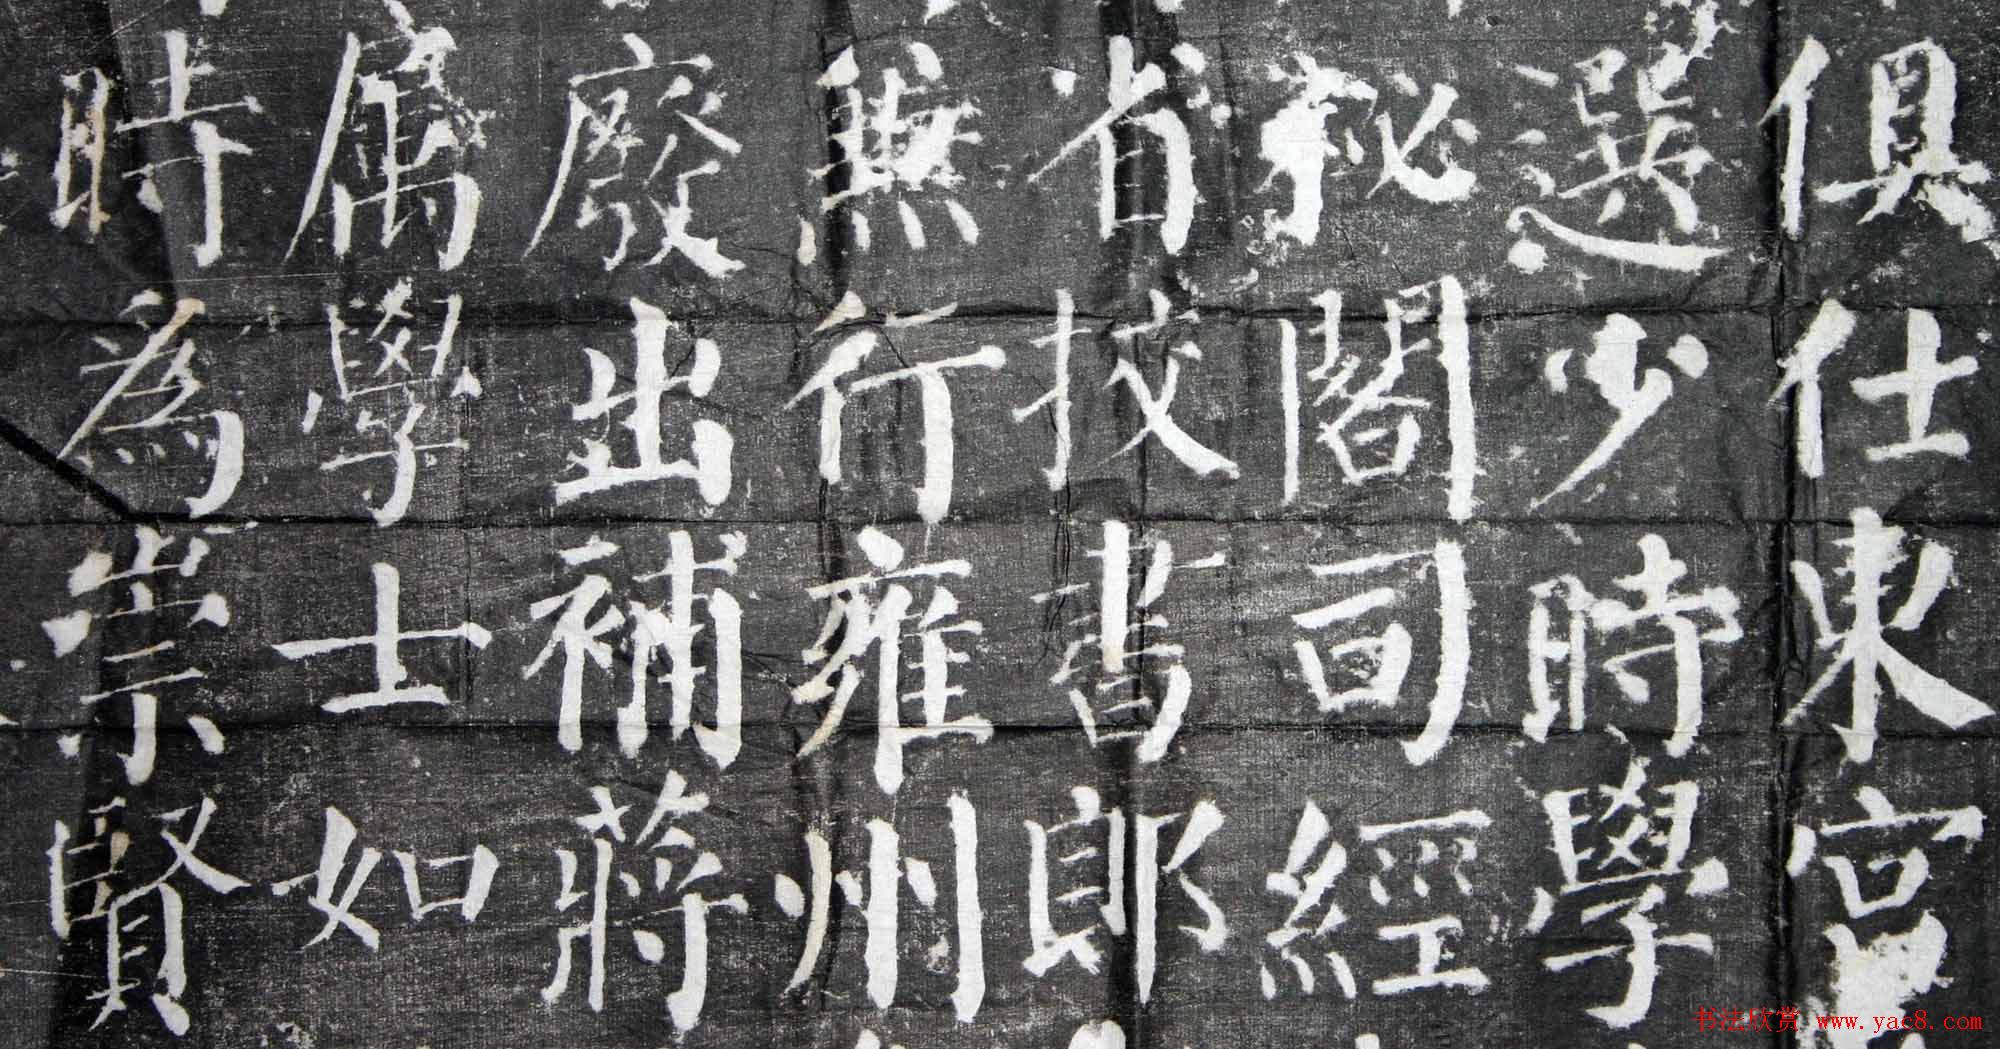 俱仕東宮
選少時學
秘閣司經
省挍書郎
無行雍州
廢出補蔣
属學士如
時為崇賢
书法欣赏 www.yac8.com